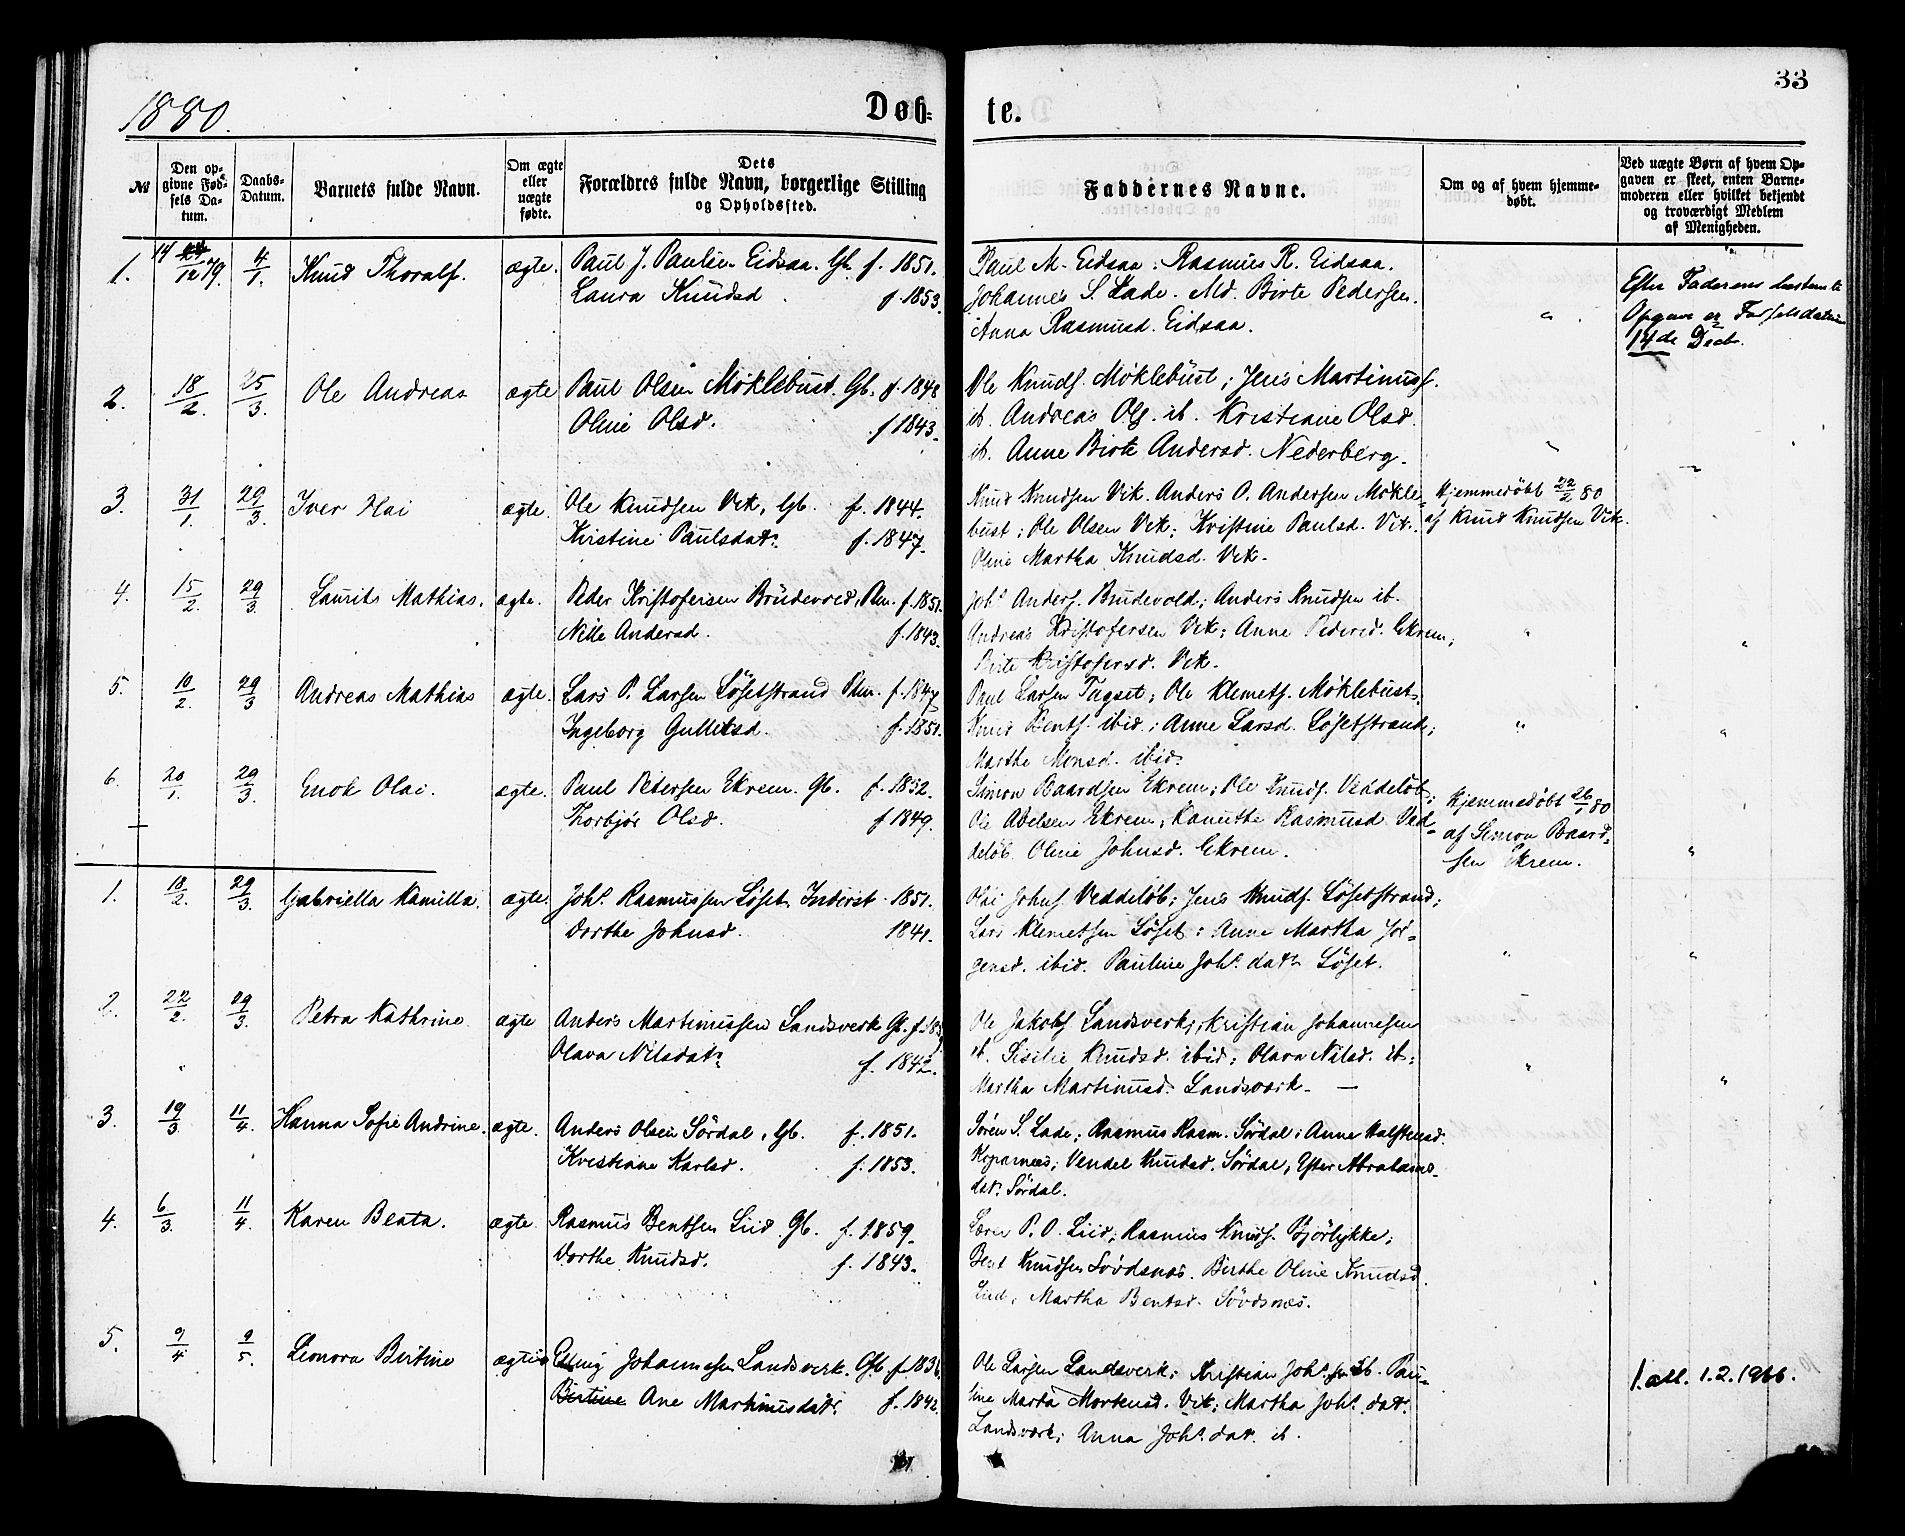 33
1880.
Døb-
te.
№
Den op-
givne Fød-
sels Da-
tum.
Daabs-
Datum.
Barnets fulde Navn.
Om ægte
eller
uægte
fødte.
Dets
Forældres fulde Navn, borgerlige Stilling
og Opholdssted.
Faddernes Navne.
Om og af hvem hjemme-
døbt.
Ved uægte Børn af hvem Op-
gaven er skeet, enten Barne-
moderen eller hvilket bekjendt
og troværdigt Medlem
af Menigheden.
1. 14 24/12 79. 4/1. Knud Thoralf. ægte. Paul J. Paulsen Eidsaa. Gb. f. 1851.
Laura Knudsd. f. 1853.
Paul M. Eidsaa; Rasmus R. Eidsaa.
Johannes S. Lade. Md. Birte Pedersen.
Anna Rasmusd. Eidsaa. "
Efter Faderens bestemte
Opgave er Fødselsdatum
14de Decb.
2. 18/2. 25/3. Ole Andreas ægte Paul Olsen Møklebust. Gb. f. 1848
Oline Olsd. f 1843.
Ole Knuds. Møklebust; Jens Martinuss.
ib. Andreas Ols. ib. Kristiane Olsd.
ib. Anne Birte Andersd. Nederberg. "
3. 31/1. 29/3. Iver Hai ægte. Ole Knudsen Vik, Gb. f. 1844.
Kirstine Paulsdatr. f. 1847.
Knud Knudsen Vik. Anders O. Andersen Møkle-
bust; Ole Olsen Vik; Kristine Paulsd. Vik.
Oline Martha Knudsd. Vik.
Hjemmedøbt 22/2 80
af Knud Knudsen Vik.
4. 15/2. 29/3. Laurits Mathias. ægte. Peder Kristofersen Brudevold, Pm. f. 1851.
Nille Andersd. f. 1843.
Johs. Anders. Brudevold; Anders Knudsen ib.
Andreas Kristofersen Vik; Anne Pedersd. Ekrem;
Birte Kristofersd. Vik. " "
5. 10/2. 29/3 Andreas Mathias ægte. Lars P. Larsen Løsetstrand Pm. f. 1847
Ingeborg Gulliksd. f. 1851.
Paul Larsen Tuset; Ole Klemets. Møklebust;
Knud Bents. ibid.; Anne Larsd. Løsetstrand;
Marthe Monsd. ibid. " "
6. 20/1. 29/3. Enok Olai. ægte. Paul Petersen Ekrem. Gb. f. 1852.
Thorbjør Olsd. f 1849.
Simon Baardsen Ekrem; Ole Knuds. Veddeløb;
Ole Abelsen Ekrem; Kanutte Rasmusd. Ved-
deløb. Oline Johnsd. Ekrem.
Hjemmedøbt 26/1 80
af Simon Baard-
sen Ekrem. "
1. 18/2. 29/3. Gabriella Kamilla. ægte. Johs. Rasmussen Løset. Inderst 1851.
Dorthe Johnsd. 1841.
Olai Johns. Veddeløb; Jens Knuds. Løsetstrand;
Lars Klemetsen Løset; Anne Martha Jør-
gensd. ibid. Pauline Johs. datr. Løset. " "
2. 22/2. 29/3. Petra Kathrine. ægte Anders Martinussen Landsverk Gb. f.
Olava Nilsdatr. f. 1842.
Ole Jakobs. Landsverk; Kristian Johannesen
ib. Sisilie Knudsd. ibid; Olava Nilsd. ib;
Martha Martinusd. Landsværk. — " "
3. 19/3. 11/4. Hanna Sofie Andrine. ægte. Anders Olsen Sørdal, Gb. f. 1851.
Kristiane Karlsd. f. 1853.
Søren S. Lade; Rasmus Rasm. Sørdal; Anne Halstensd.
Koparnæs; Vendel Knudsd. Sørdal; Ester Abrahams-
datr. Sørdal.
4. 6/3. 11/4. Karen Beata. ægte. Rasmus Bentsen Liid. Gb. f. 1859.
Dorthe Knudsd. f. 1843.
Søren P. O. Liid; Rasmus Knuds. Bjørlykke;
Bent Knudsen Søvdsnæs. Birthe Oline Knudsd.
Liid; Martha Bentsd. Søvdsnæs.
5. 9/4 9/5. Leonora Birtine ægte Elling Johannesen Landsverk. Gb. f 1836.
Birtine Ane Martinusdatr. f. 1842.
Ole Larsen Landsverk; Kristian Johs. sn ib. Pau-
line Marta Mortensd. Vik; Martha Johs. datr.
Landsværk; Anna Johs. dat. ib.
1. all. 1.2.1966.